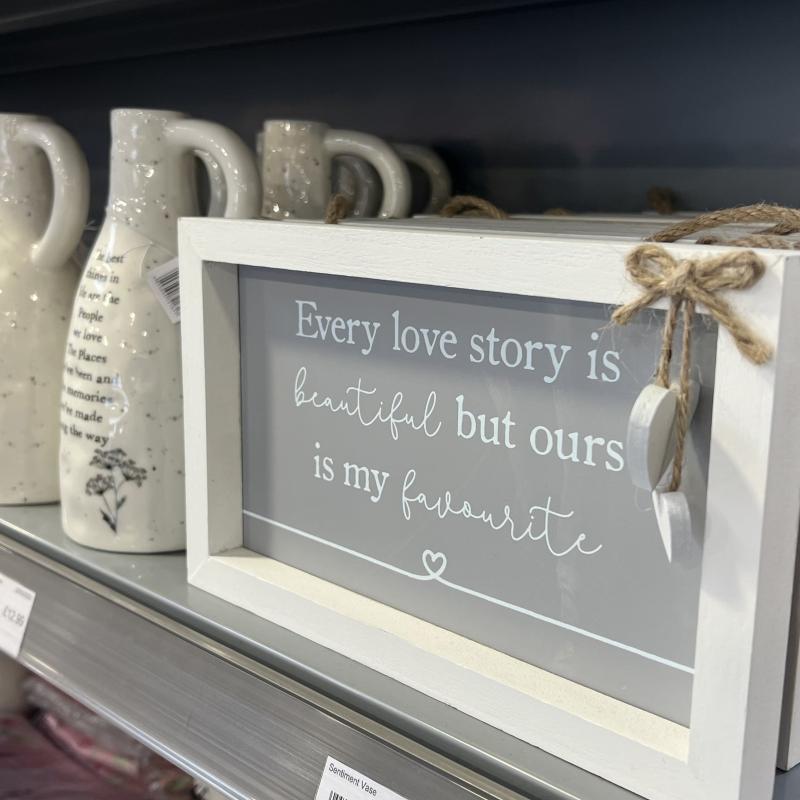 Every love story is
beautiful but ours
is my favourite
The best
things in
life are the
People
we love
The Places
we've been and
memories
we've made
along the way
£12.99
Sentiment Vase